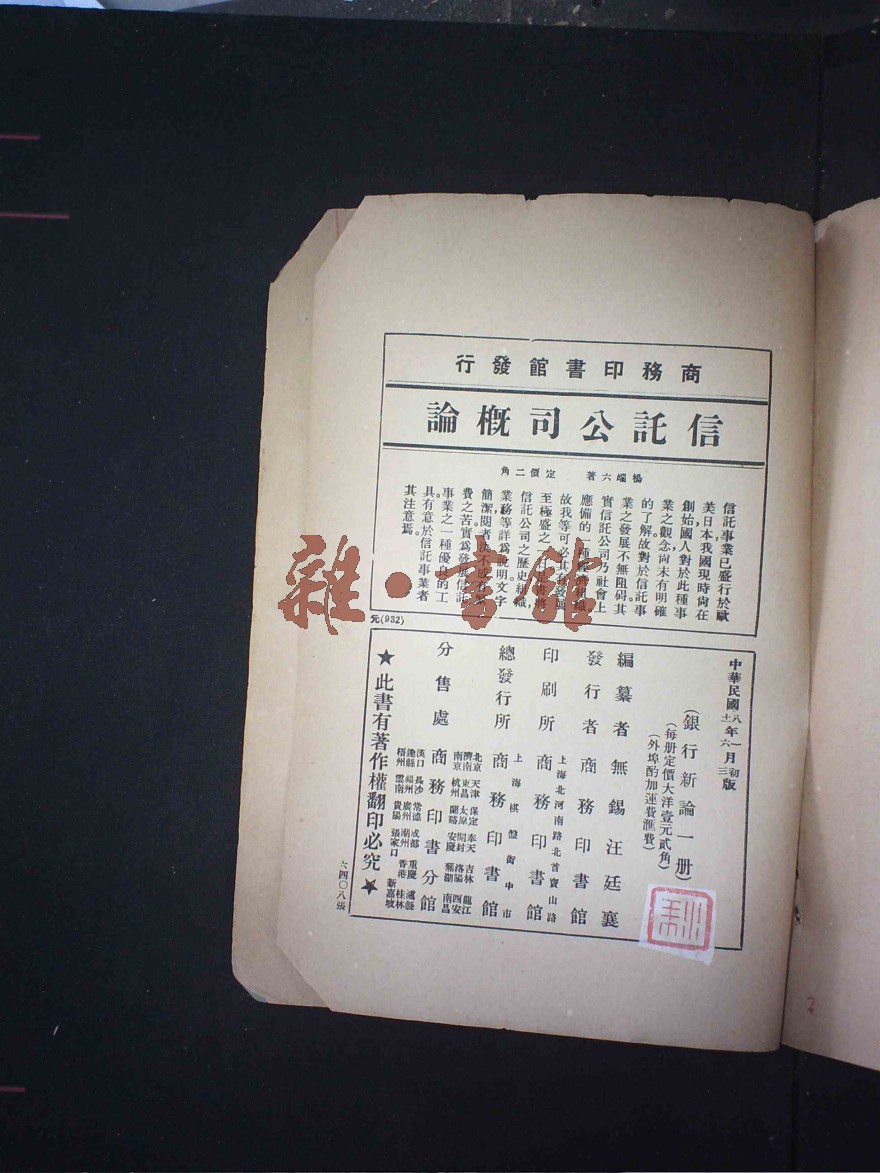 商務印書館發行
信託公司概論
楊端六著　定價二角
信託事業已盛行於歐
美日本，我國現時尙在
創始，國人對於此種事
業之觀念尙未有明確
的了解，故對於信託事
業之發展不無阻碍。其
實信託公司乃社會上
應備的一種
故我等可必其
至極盛之一日。
信託公司之歷史組織，
業務等詳爲說明，文字
簡潔，閱者
費之苦，實爲發展信託
事業之一種優良的工
具，有意於信託事業者
其注意焉。
元(932)
中華民國八年一月初版
十一年六月三版
(銀行新論一册)
(每册定價大洋壹元貳角)
(外埠酌加運費匯費)
編纂者 無錫汪廷襄
發行者 商務印書館
上海北河南路北首寶山路
印刷所 商務印書館
上海棋盤街中市
總發行所 商務印書館
分售處 商務印書分館
北京 天津 保定 奉天 吉林 龍江
濟南 東昌 太原 開封 洛陽 西安
南京 杭州 蘭谿 安慶 蕪湖 南昌
漢口 長沙 常德 成都 重慶 瀘縣
福州 廣州 潮州 香港 桂林
梧州 雲南 貴陽 張家口 新嘉坡
★此書有著作權翻印必究★
六四〇八張
雜·書館